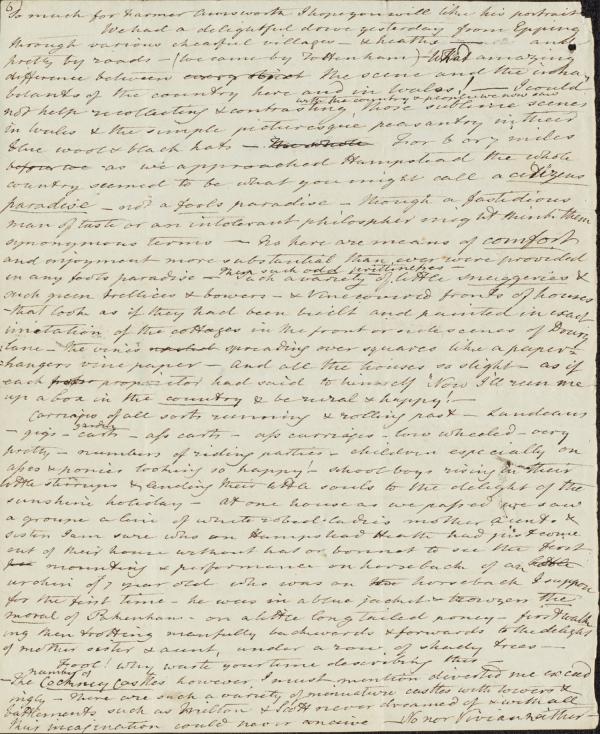 6
So much for Farmer Ainsworth I hope you will like his portrait
We had a delightful drive yesterday from Epping
through various cheerful villages - & heaths and
pretty by roads - (we came by Tottenham) What amazing
difference between every object the scene and the inha
bitants of the country here and in Wales! I could
with the country & people we now saw
not help recollecting & contrasting those sublime scenes
in Wales & the simple picturesque peasantry in their
blue wool & black hats - the whole For 6 or 7 miles
before we as we approached Hampstead the whole
country seemed to be what you might call a citizens
paradise - not a fools paradise - though a fastidious
man of taste or an intolerant philosopher might think them
synonymous terms - No here are means of comfort
and enjoyment more substantial than ever were provided
in any fools paradise - Then such odd prettinesses -
Such a variety of little snuggeries &
such green trellices & bowers - & vine covered fronts of houses
that look as if they had been built and painted in exact
imitation of the cottages in the front or side scenes of Drury
lane - the vines spreading over squares like a paper-
hangers vine paper - and all the houses so slight - as if
each proprietor had said to himself Now I'll run me
up a box in the country & be rural & happy! -
Carriages of all sorts running & rolling past - Landeaus
- gigs - gardens carts - ass carts - ass carriages - low wheeled - very
pretty - numbers of riding parties - children especially on
asses & ponies looking so happy! school boys rising in their
little stirrups & lending their little souls to the delight of the
sunshine holiday - At one house as we passed we saw
a groupe a line of white robed ladies mother Aunt &
sister I am sure who on Hampstead Heath had just come
out of their house without hat or bonnet to see the feat
mounting & performance on horseback of a little
urchin of 7 year old who was on horseback I suppose
for the first time - he was in a blue jacket & trowzers the
moral of Pakenham - on a little long tailed poney - first walk
ing then trotting manfully backwards & forwards to the delight
of mother sister & aunt, under a row of shady trees -
Fool! why waste your time describing this -
- The number of Cockney Castles however, I must mention diverted me exceed
ingly - There are such a variety of miniature castles with towers &
battlements such as Milton & Scott never dreamed of & with all
their imagination could never conceive - No nor Vivian neither